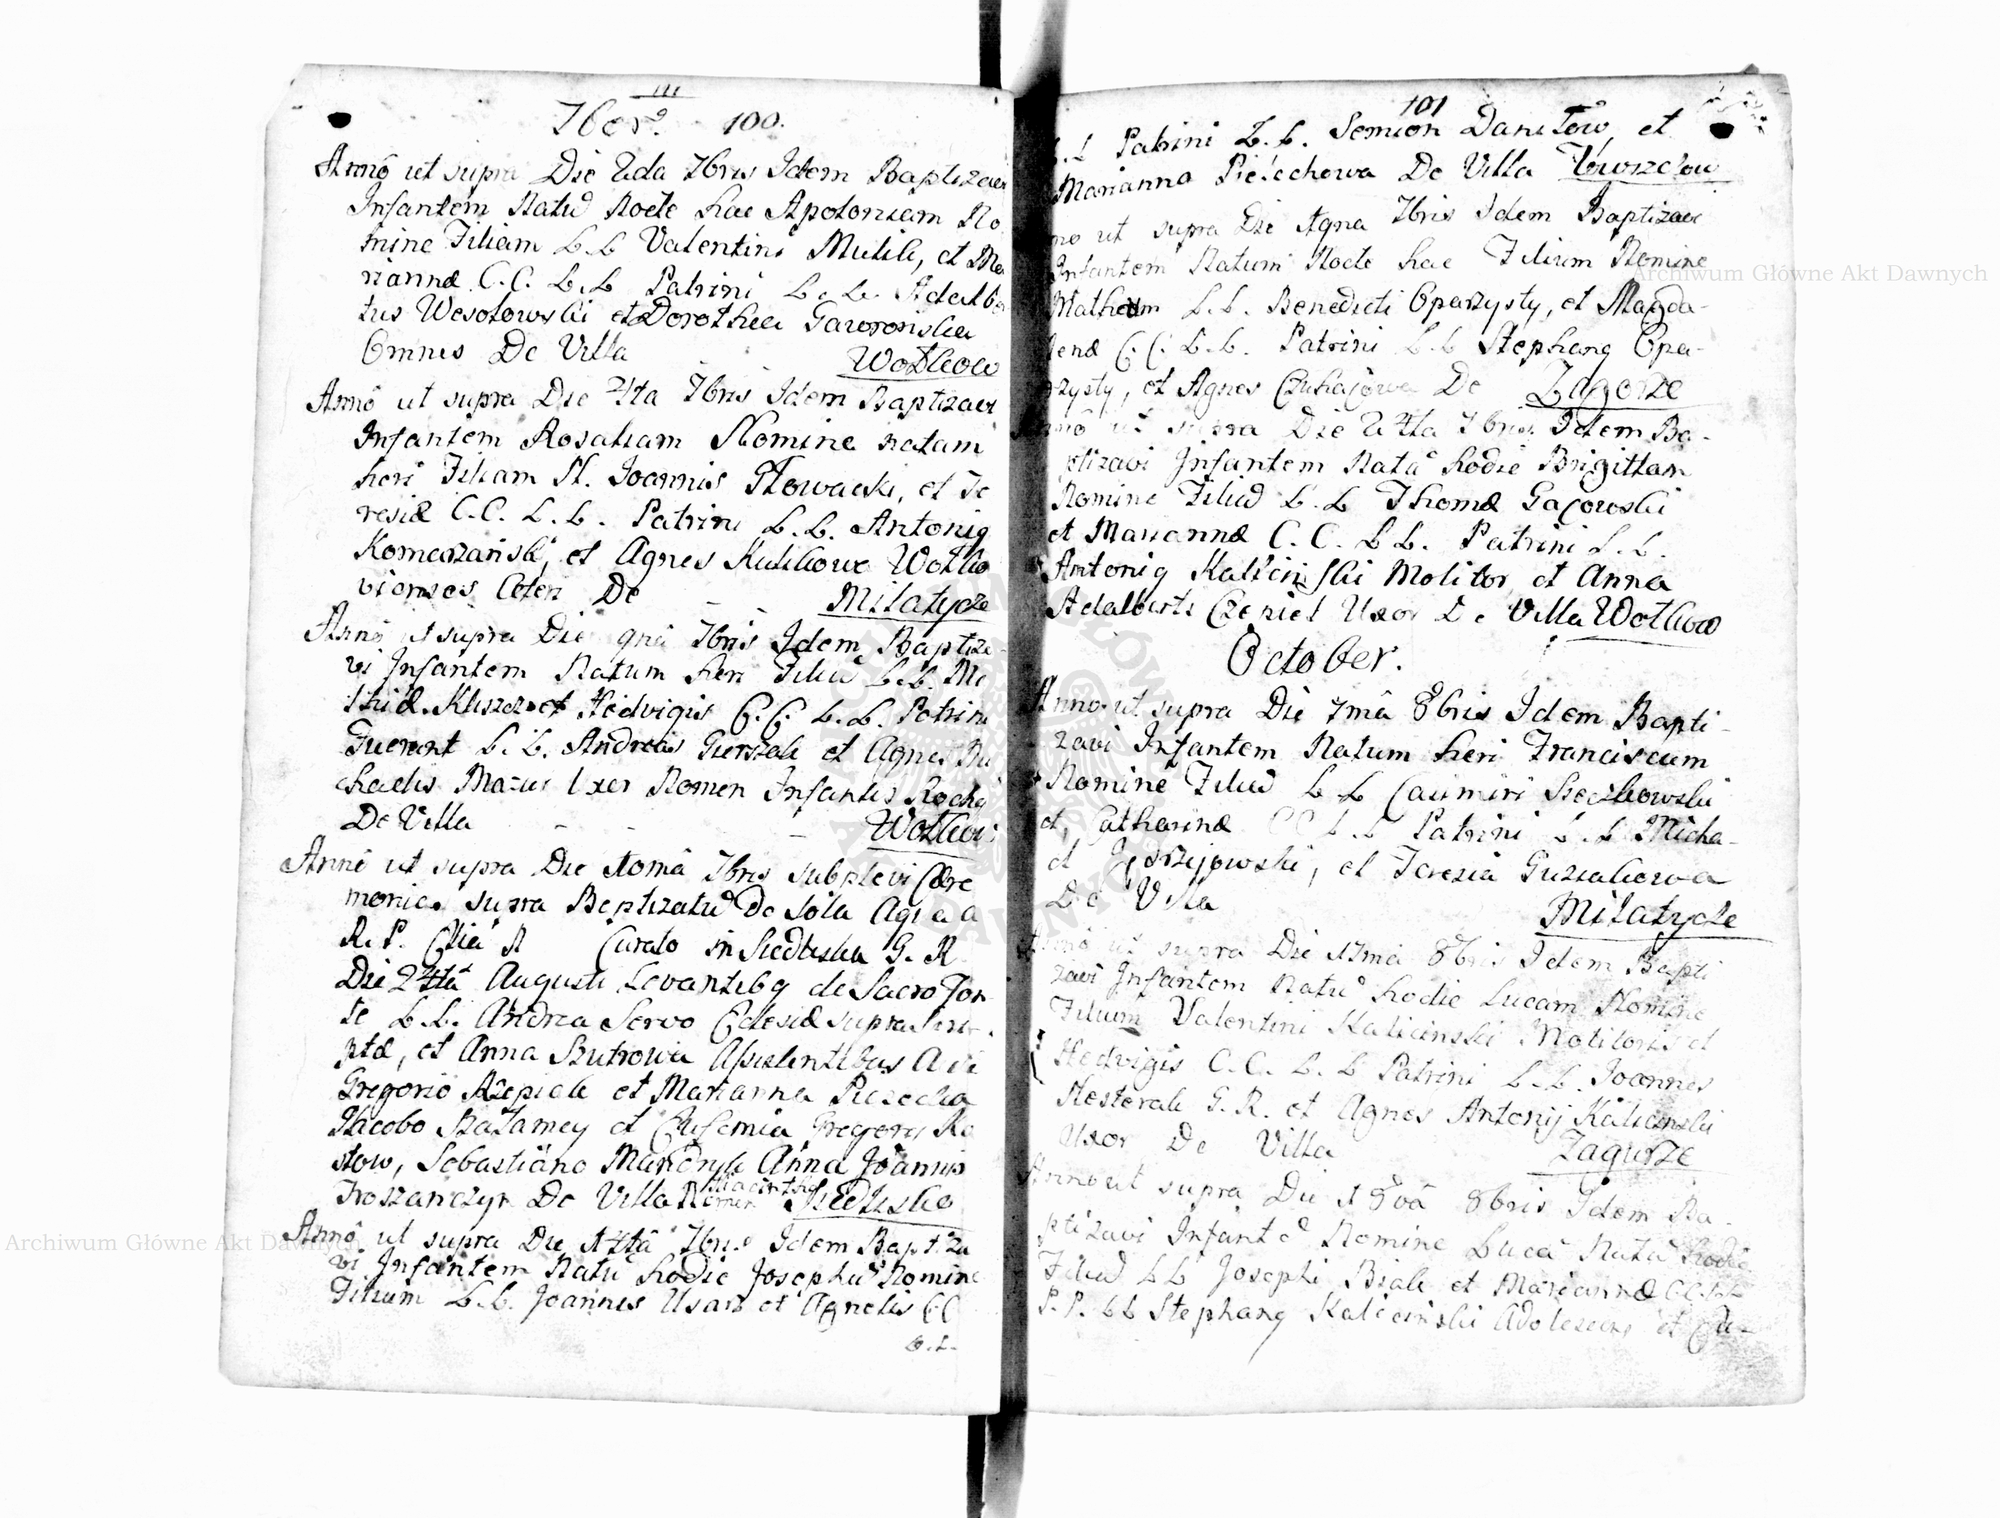 7ber. 100.
Annô ut supra Die 2da 7bris Idem Baptizavi
Infantem Natã Nocte hac Apoloniam No
mine Filiam L.L Valentini Mulik, et Ma
riannæ C.C. L.L Patrini L.L. Adalber
tus Wesołowski et Dorothea Gaworonska
Omnes De Villa Wołkow
Annô ut supra Die 4ta 7bris Idem Baptizavi
Infantem Rosaliam Nomine natam
heri Filiam N. Joannis Słowacki, et Te
resiæ C.C. L.L. Patrini L.L. Antonig
Komarzański, et Agnes Kulikowa Wołko
vienses Ceteri De Milatycze
Annô ut supra Die 9nâ 7bris Idem Baptiza
vi Infantem Natum heri Filiũ L.L. Ma
thiæ Kluszcz et Hedvigis C.C. L.L. Patrini
Fuerunt L.L. Andreas Gierszak et Agnes Mi
chaelis Mazur Uxor Nomen Infantis Rochg
De Villa Wołkow
Annô ut supra Die 10mâ 7bris subplevi Cære
monias supra Baptizatũ De sola Aqua a
R. P. Curato in Siedliska G. R.
Die 24tâ Augusti Levantibg de Sacro Fon
te L.L. Andrea Servo Eclesiæ supra scri
ptæ, et Anna Butrowa Assistentibus
Gregorio et Marianna
Jacobo et Eufemia Gregory
stow, Sebastiano Mandryk Anna Joannis
Troszanczyn De Villa Nomen Hiacinthg Siedliska
Annô ut supra Die 14tâ 7bris Idem Baptiza
vi Infantem Natũ hodie Josephũ Nomine
Filium L.L. Joannis Usarz et Agnetis CC
L.L.
101
L.L Patrini L.L. Semion Daniłow, et
Marianna Pielechowa De Villa Towszczow
no ut supra Die 21gna 7bris Idem Baptizavi
Infantem Natum Nocte hac Filium Nomine
Matheum L.L. Benedicti Oparzysty, et Magda-
lenæ C.C. L.L. Patrini L.L Stephang Opa-
rzysty, et Agnes Czuhajowa De Zagorze
Annô ut supra Die 24ta 7bris Idem Ba-
ptizavi Infantem Natã hodie Brigittam
Nomine Filiã L.L Thomæ Gajowski
et Mariannæ C.C. L.L. Patrini L.L.
Antonig Kalicinski Molitor et Anna
Adalberti Czeniel Uxor De Villa Wołkow
October.
Anno ut supra Die 7mâ 8bris Idem Bapti-
zavi Infantem Natum heri Franciscum
Nomine Filiũ L.L Casimiri Sieczkowski
et, Catharinæ CC L.L Patrini L.L Micha-
el Jędrzejowski, et Teresia Guziakowa
De Villa Milatycze
Annô ut supra Die 17ma 8bris Idem Bapti
zavi Infantem Natũ hodie Lucam Nomine
Filium Valentini Kalicinski Molitoris et
Hedvigis C.C. L.L Patrini L.L. Joannes
Nesterak G.R. et Agnes Antonij Kalicinski
Uxor De Villa Zagurze
Anno ut supra Die 18vâ 8bris Idem Ba-
ptizavi Infantẽ Nomine Lucã Natũ hodie
Filiũ LL Josephi Biały et Mariannæ CC. LL
P.P. LL Stephang Kalicinski Adolescens et